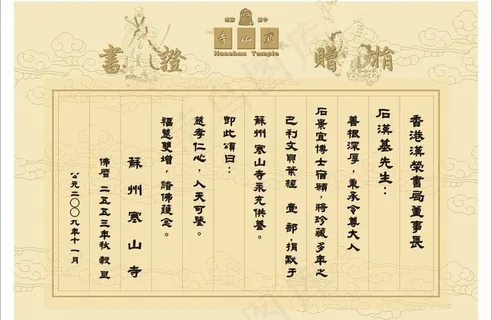 捐贈證書
寒山寺
Hanshan Temple
香港漢榮書局董事長
石漢基先生：
善根深厚，秉承令尊大人
石景宜博士宿願，將珍藏多年之
巴利文貝葉經 壹 部，捐獻于
蘇州寒山寺永充供養。
即此頌曰：
慈孝仁心，人天可鑒。
福慧雙增，諸佛護念。
蘇州寒山寺
佛曆二五五三年秋穀旦
公元二〇〇九年十一月